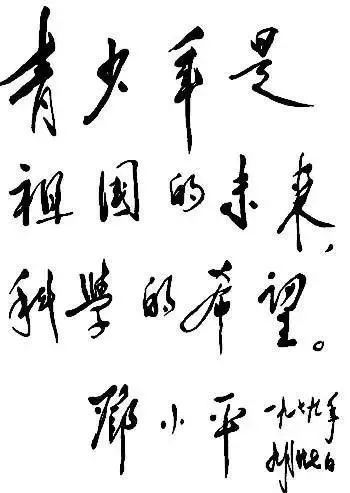 青少年是
祖國的未来，
科學的希望。
鄧小平 一九七九年
九月